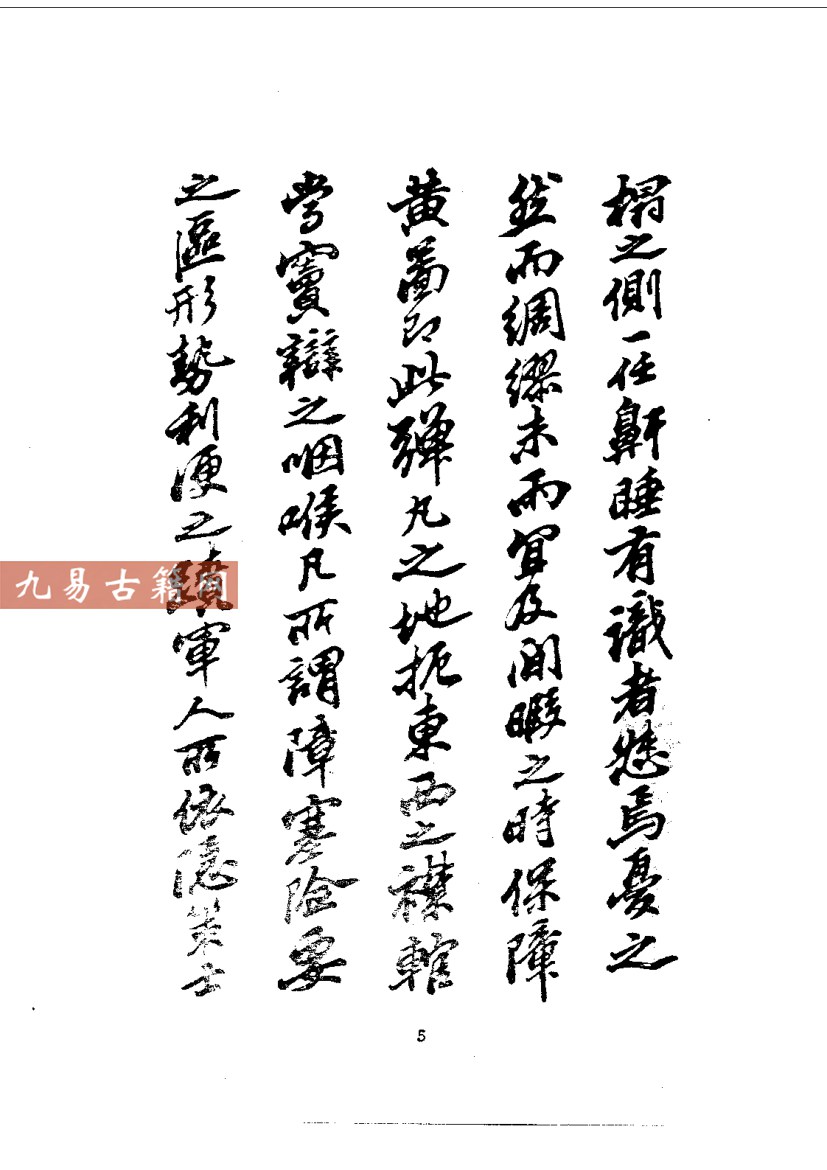 榻之側一任鼾睡有識者愁焉憂之
然而綢繆未雨宜及閒暇之時保障
黃圖即此彈丸之地扼東西之襟轄
當竇辯之咽喉凡所謂障塞險要
之區形勢利便之蹟軍人所依隱策士
九易古籍网
5